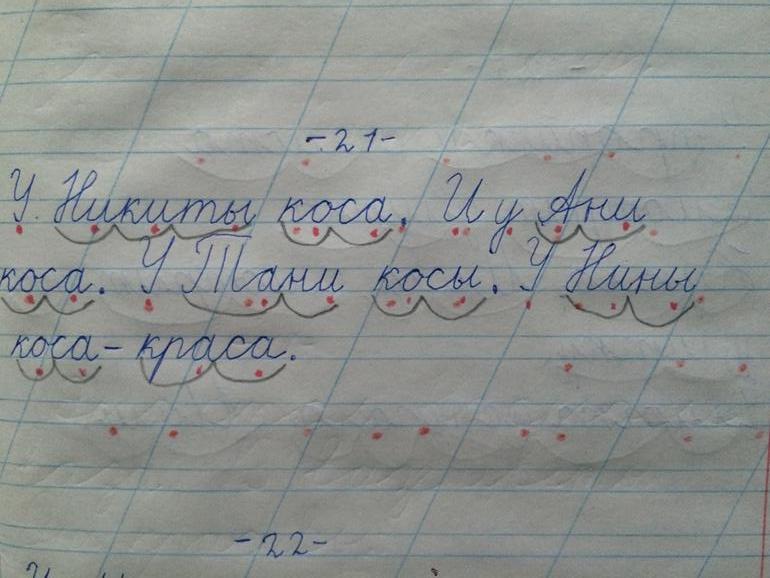 -21-
У Никиты коса. И у Ани
коса. У Тани косы. У Нины
коса - краса.
-22-